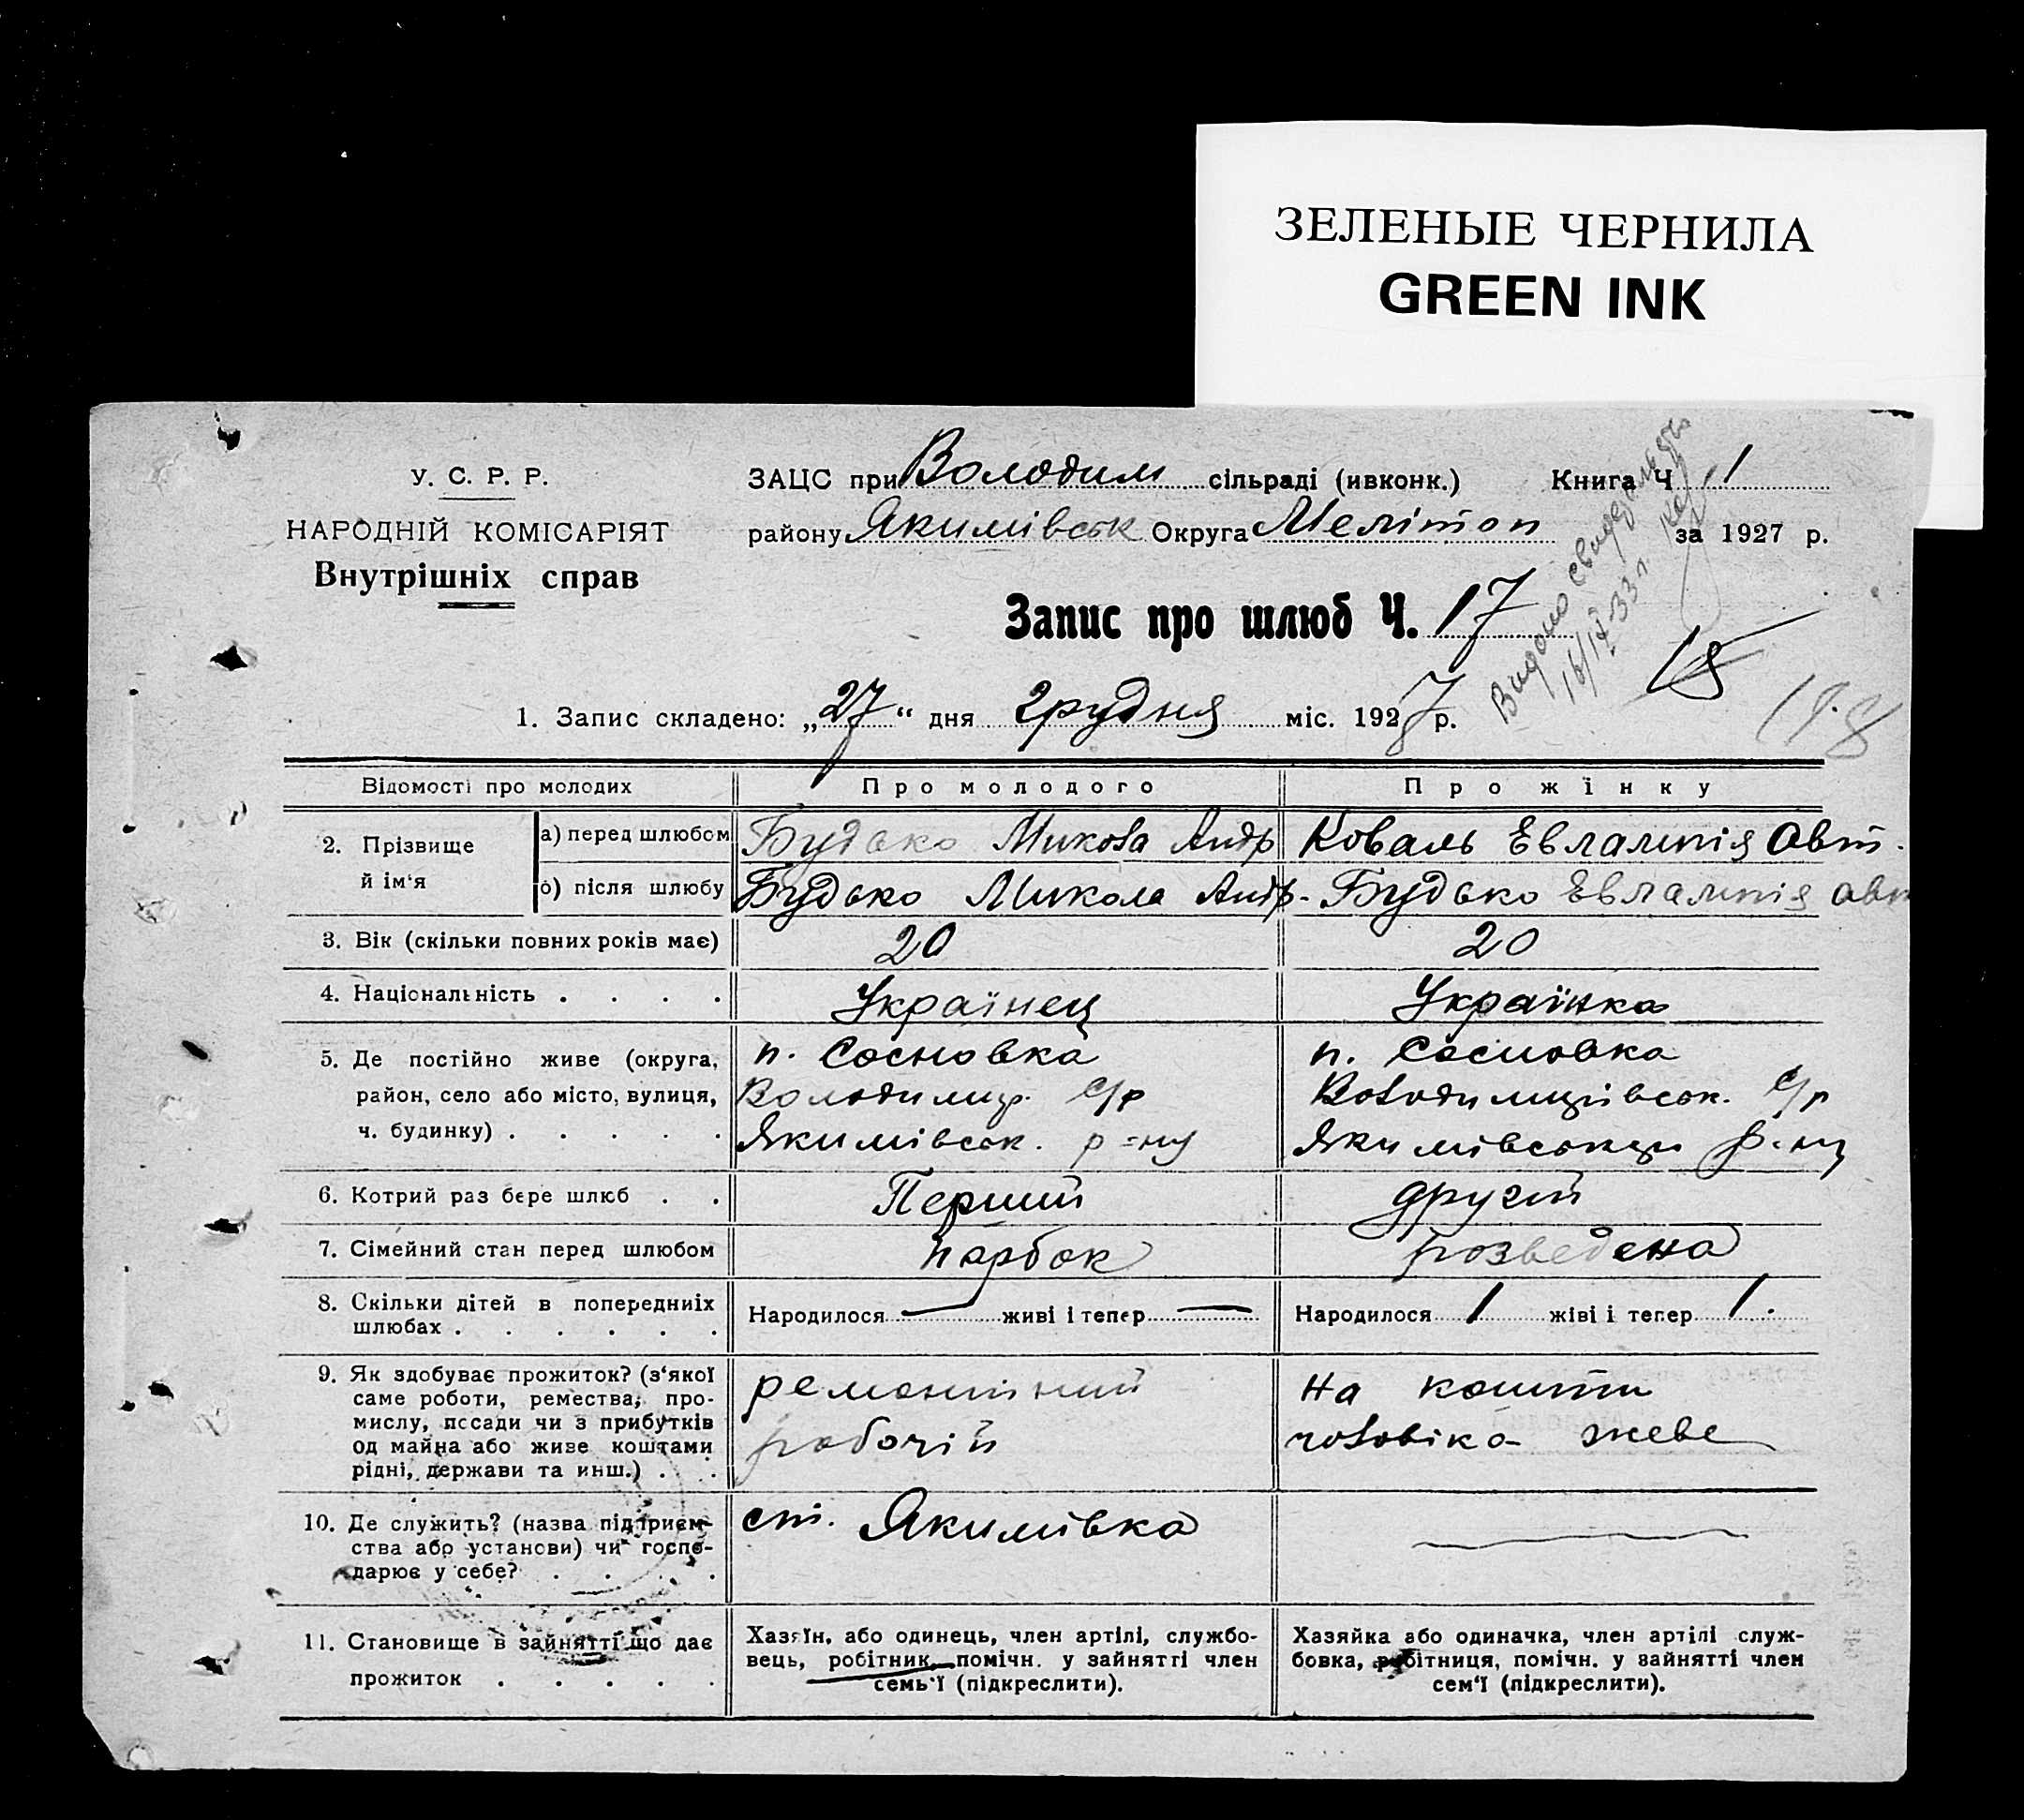 ЗЕЛЕНЫЕ ЧЕРНИЛА
GREEN INK
У. С. Р. Р.
НАРОДНІЙ КОМІСАРІЯТ
Внутрішніх справ
ЗАЦС при Володим сільраді (ивконк.) Книга Ч 1
району Якимівськ Округа Мелітоп за 1927 р.
Видано
16/IV-33 г.
Запис про шлюб Ч. 17
18
198
1. Запис складено: „27“ дня грудня міс. 1927 р.
Відомості про молодих Про молодого Про жінку
2. Прізвище й ім'я а) перед шлюбом Будько Микола Андр Коваль Евлампія Авт.
б) після шлюбу Будько Микола Андр- Будько Евлампія авт
3. Вік (скільки повних років має) 20 20
4. Національність . . . . Українец Українка
5. Де постійно живе (округа, п. Сосновка п. Сосновка
район, село або місто, вулиця, Володимир. С/р Володимирівськ. С/р
ч. будинку) . . . . . Якимівськ. р=ну Якимівськи р-ну
6. Котрий раз бере шлюб . . Перший другий
7. Сімейний стан перед шлюбом парбок розведена
8. Скільки дітей в попередниіх шлюбах . . . . . . Народилося — живі і тепер — Народилося 1 жіві і тепер 1.
9. Як здобуває прожиток? (з'якої
саме роботи, ремества, про- ремонтний На кошти
мислу, посади чи з прибутків
од майна або живе коштами робочій чоловіка жеве
рідні, держави та инш.) . .
10. Де служить? (назва підприєм- ст. Якимівка
ства або установи) чи госпо-
дарює у себе? . . . .
11. Становище в зайнятті що дає Хазяїн, або одинець, член артілі, службо- Хазяйка або одиначка, член артілі служ-
прожиток . . . . . вець, робітник, помічн. у зайнятті член бовка, робітниця, помічн. у зайнятті член
семь'ї (підкреслити). сем'ї (підкреслити).